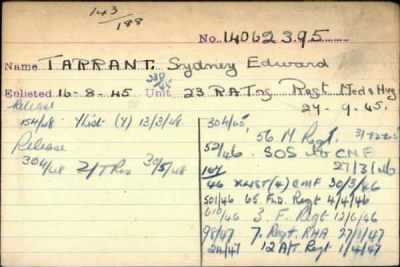 143
188
No. 14062395
Name TARRANT. Sydney Edward
Enlisted 16-8-45 Unit 23 R.A. Trg Regt Med & Hvy
27-9-45.
Release
154/48 (Y) 13/3/48
Release
304/48 30/5/48
304/45
56 M. Regt.
52/46 SOS to CMF
27/3/46
46 (4) CMF 30/3/46
501/46 65 Fd. Regt 4/4/46
610/46 3. F. Regt 12/6/46
98/47 7. Regt. RHA 27/1/47
24/47 12 A/T Regt 1/4/47